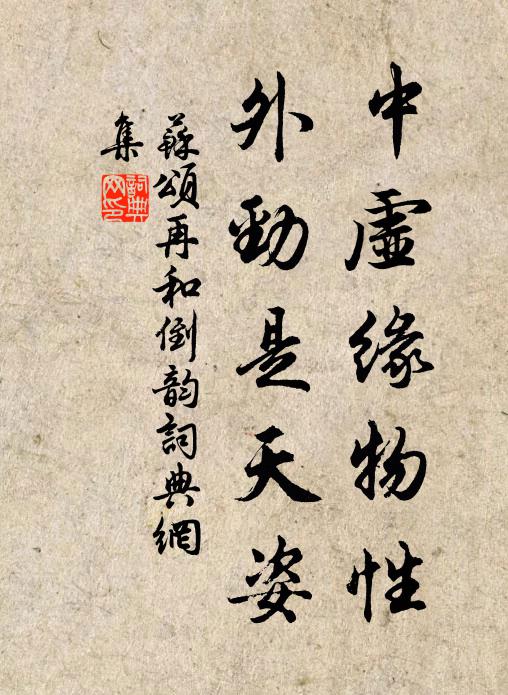 中虛緣物性
外勁是天姿
蘇頌再和倒韵詞典網
集
詞典
网印